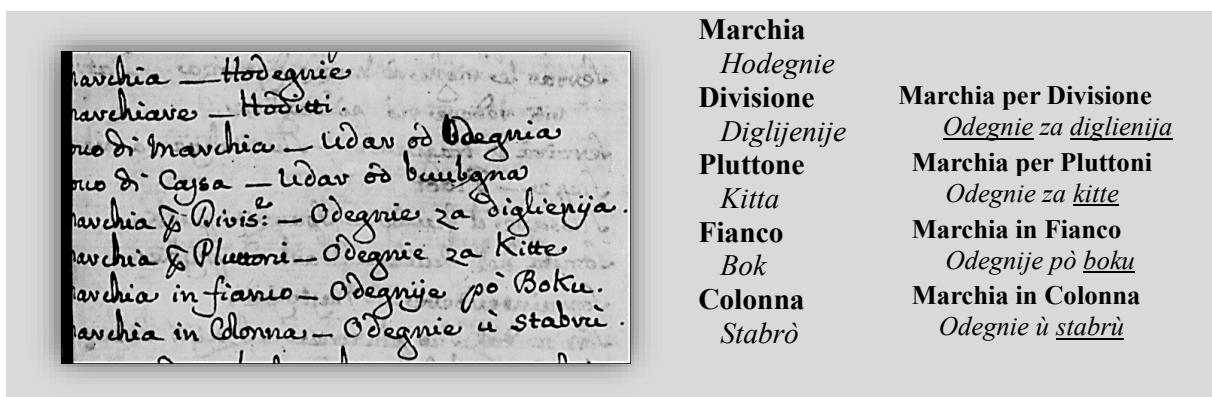 archia — Hodegnie
archiare — Hoditti.
uo di Marchia — Udar òd Odegnia
uo di Cassa — Udar òd
archia Divis:e — Odegnie za diglienija.
archia Pluttoni — Odegnie za Kitte
archia in fianco — Odegnije pò Boku.
archia in Colonna — Odegnie ù stabrù.
Marchia
Hodegnie
Divisione
Diglijenije
Pluttone
Kitta
Fianco
Bok
Colonna
Stabrò
Marchia per Divisione
Odegnie za diglienija
Marchia per Pluttoni
Odegnie za kitte
Marchia in Fianco
Odegnije pò boku
Marchia in Colonna
Odegnie ù stabrù